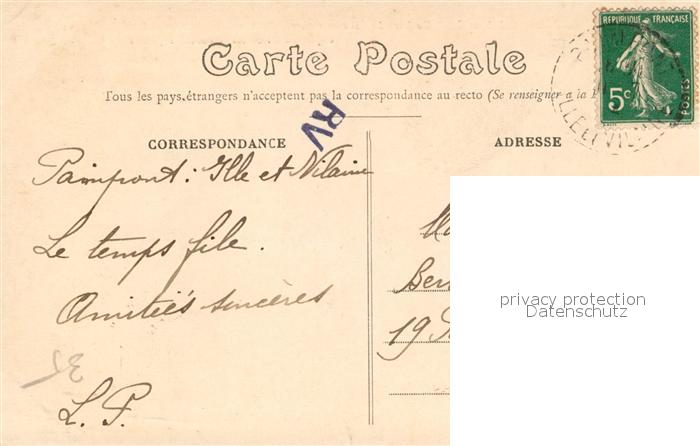 Carte Postale
Tous les pays étrangers n'acceptent pas la correspondance au recto (Se renseigner a la
RÉPUBLIQUE FRANÇAISE
5c
POSTES
ILLE-ET-VIL
RV
CORRESPONDANCE
ADRESSE
Paimpont : Ille et Vilaine
Le temps file.
Amitiés sincères
L. P.
Ber
19
privacy protection
Datenschutz